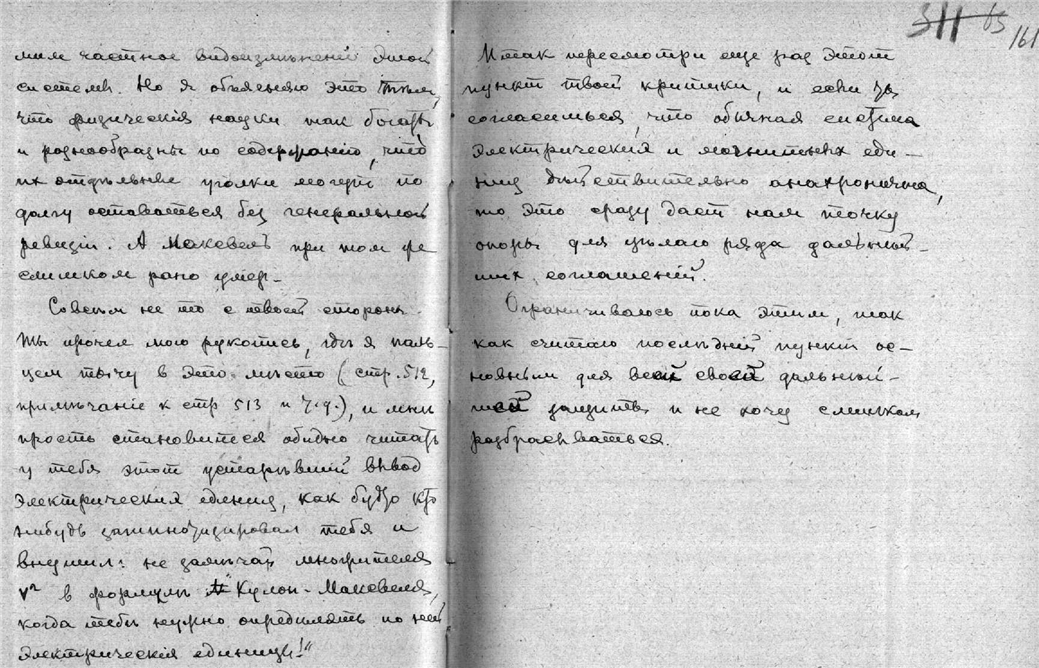 мим частное видоизмѣненіе этой
системы. Но я объясняю это тѣмъ,
что физическія науки так богаты
и разнообразны по содержанію, что
их отдѣльные уголки могут по
долгу оставаться без генеральной
ревизіи. А Максвелъ при том же
слишком рано умер.
Совсѣм не то с твоей стороны.
Ты прочел мою рукопись, гдѣ я паль-
цем тычу в это мѣсто (стр. 512,
примѣчаніе к стр 513 и т.д.), и мнѣ
просто становится обидно читать
у тебя этот устарѣвшій вывод
электрических единиц, как будто кто
нибудь загипнотизировал тебя и
внушил: не замѣчай множителя
v² в формулѣ Кулон-Максвеля,
когда тебѣ нужно опредѣлять по ней
электрическія единицы!"
311 65
161
Итак пересмотри еще раз этот
пункт твоей критики, и если ты
согласишься, что обычная система
электрических и магнитных еди-
ниц дѣйствительно анахронична,
то это сразу даст нам точку
опоры для цѣлаго ряда дальнѣй-
ших соглашеній.
Ограничиваюсь пока этим, так
как считаю послѣдній пункт ос-
новным для всей своей дальнѣй-
шей защиты и не хочу слишком
разбрасываться.